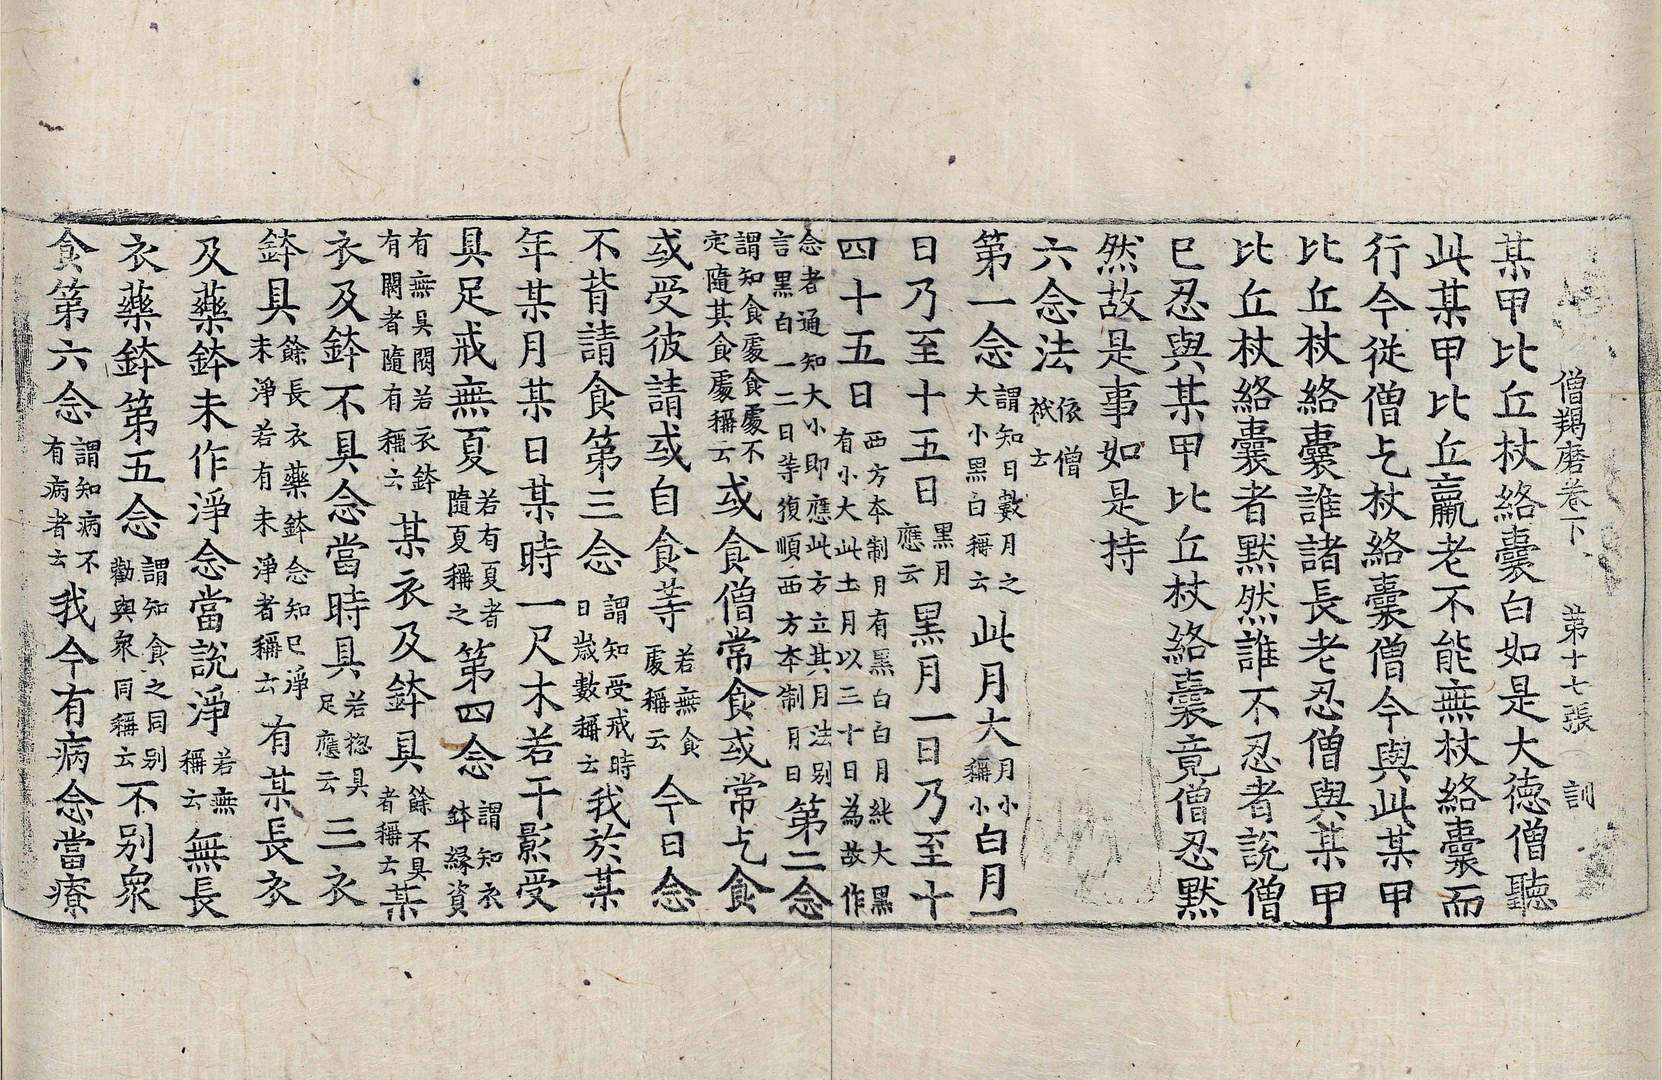 僧羯磨卷下　第十七張　訓
某甲比丘杖絡囊白如是大徳僧聽
此某甲比丘羸老不能無杖絡囊而
行今從僧乞杖絡囊僧今與此某甲
比丘杖絡囊誰諸長老忍僧與某甲
比丘杖絡囊者默然誰不忍者說僧
已忍與某甲比丘杖絡囊竟僧忍默
然故是事如是持
六念法依僧祇云
第一念謂知日數月之大小黑白稱云此月大月小稱小白月一
日乃至十五日黑月應云黑月一日乃至十
四十五日西方本制月有黑白白月純大黑有小大此土月以三十日為故作
念者通知大小即應此方立其月法別言黑白一二日等復順西方本制月日第二念
謂知食處食處不定隨其食處稱云或食僧常食或常乞食
或受彼請或自食等若無食處稱云今日念
不背請食第三念謂知受戒時日歲數稱云我於某
年某月某日某時一尺木若干影受
具足戒無夏若有夏者隨夏稱之第四念謂知衣鉢緣資
有無具闕若衣鉢有闕者隨有稱云某衣及鉢具餘不具者稱云某
衣及鉢不具念當時具若揔具足應云三衣
鉢具餘長衣藥鉢念知已淨未淨若有未淨者稱云有某長衣
及藥鉢未作淨念當說淨若無稱云無長
衣藥鉢第五念謂知食之同別勸與衆同稱云不別衆
食第六念謂知病不有病者云我今有病念當療